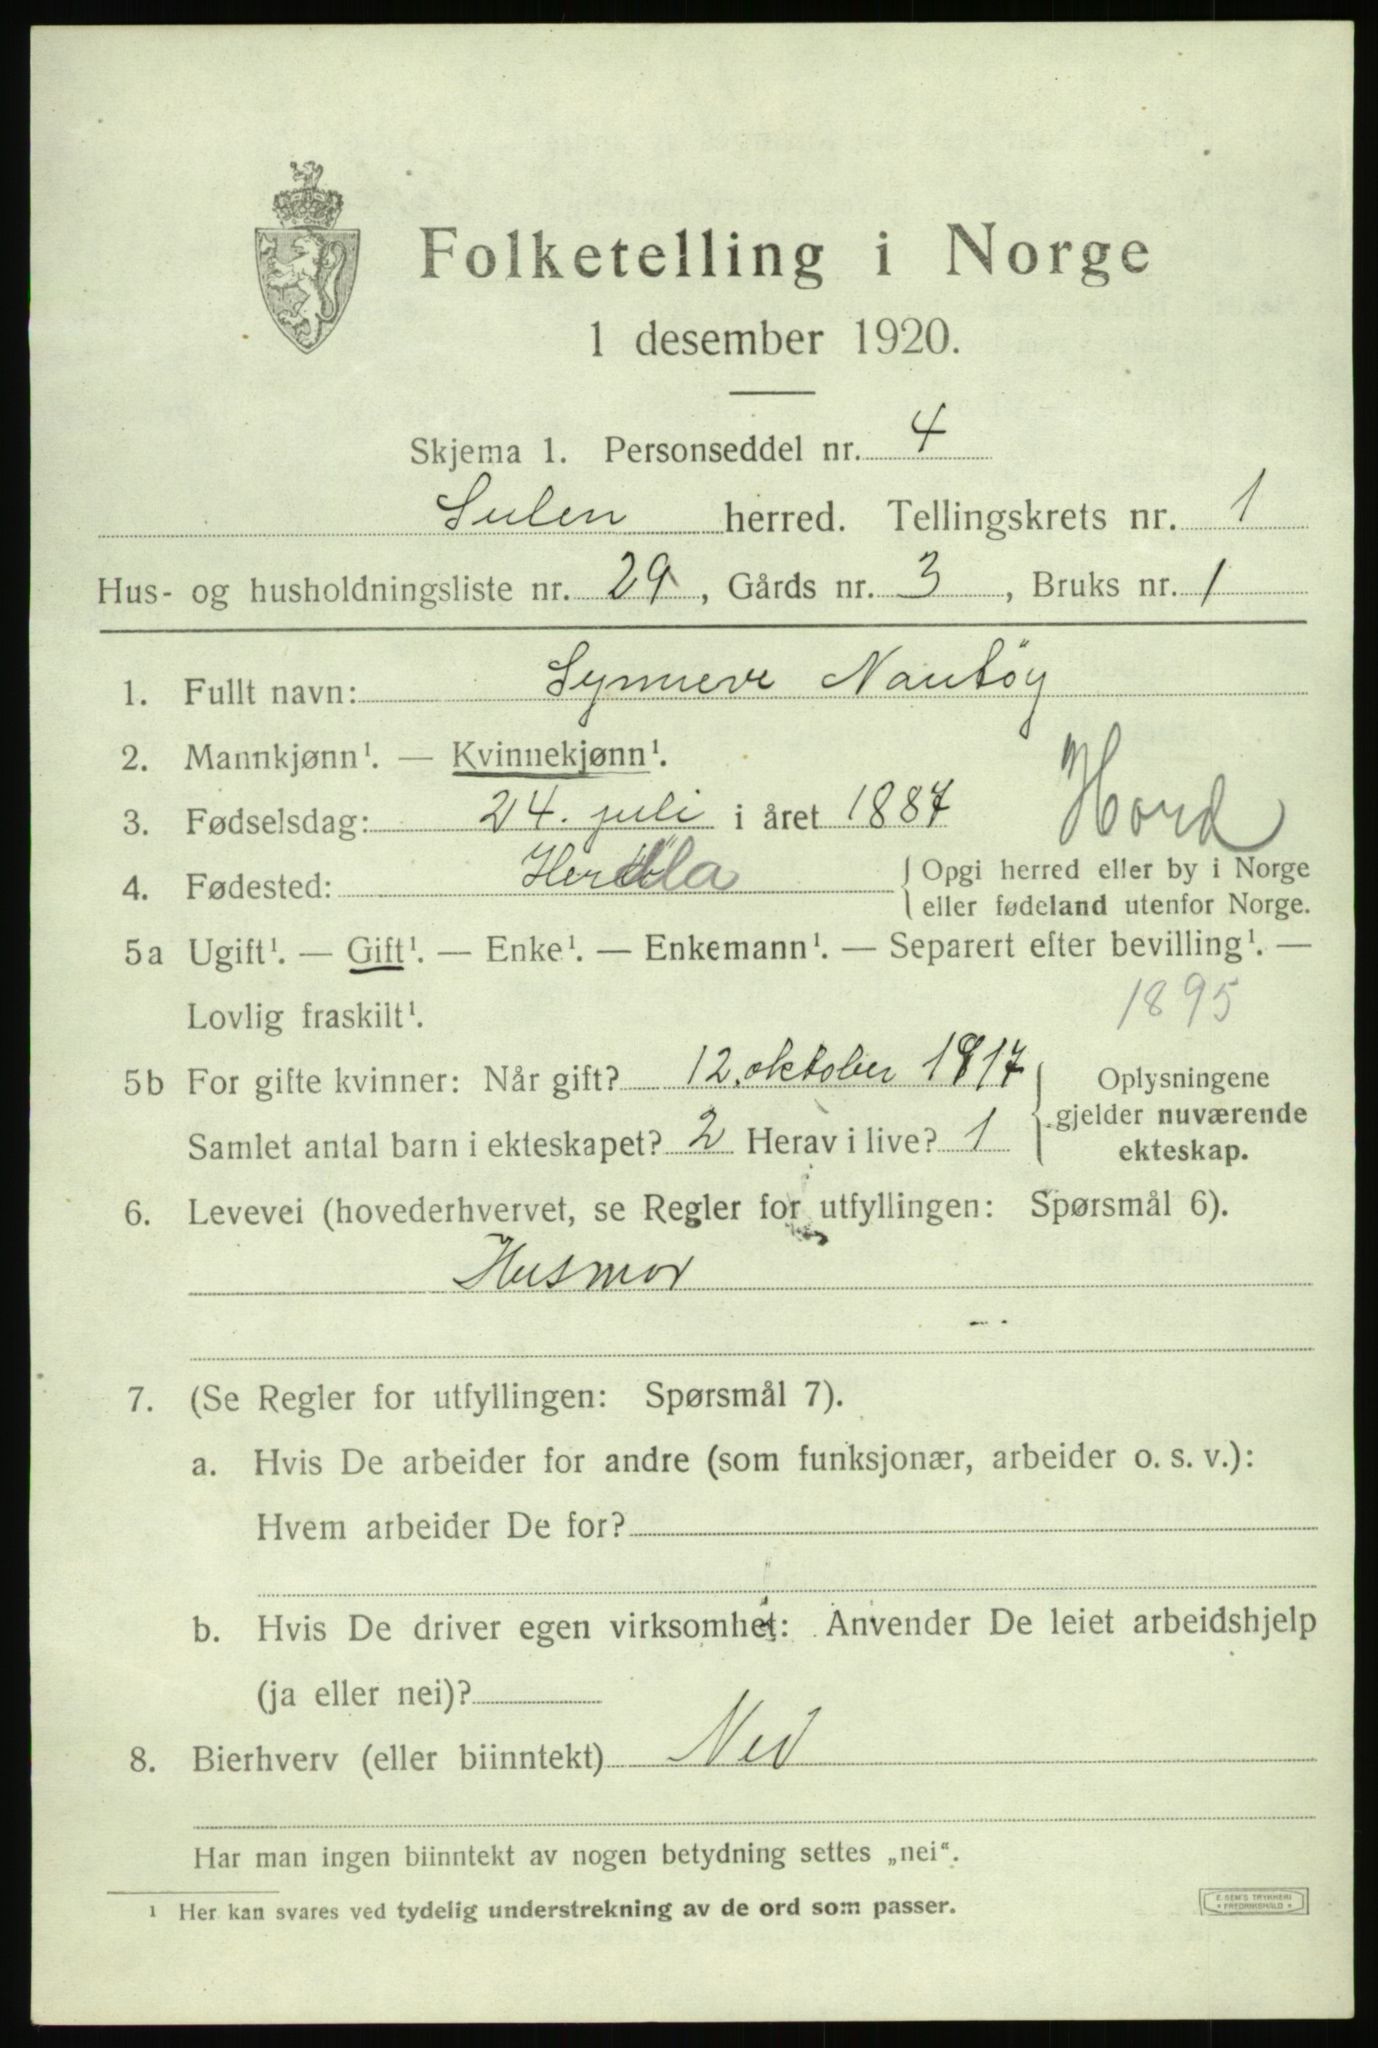 Folketelling i Norge
1 desember 1920.
Skjema 1. Personseddel nr. 4
Sulen herred. Tellingskrets nr. 1
Hus- og husholdningsliste nr. 29, Gårds nr. 3, Bruks nr. 1
1. Fullt navn: Synneve Nautöy
2. Mannkjønn¹. — Kvinnekjønn¹.
Hord
3. Fødselsdag: 24. juli i året 1887
4. Fødested: Herdla { Opgi herred eller by i Norge
eller fødeland utenfor Norge.
5a Ugift¹. — Gift¹. — Enke¹. — Enkemann¹. — Separert efter bevilling¹. —
Lovlig fraskilt¹.
1895
5b For gifte kvinner: Når gift? 12. oktober 1917
Samlet antal barn i ekteskapet? 2 Herav i live? 1
Oplysningene
gjelder nuværende
ekteskap.
6. Levevei (hovederhvervet, se Regler for utfyllingen: Spørsmål 6).
Husmor
7. (Se Regler for utfyllingen: Spørsmål 7).
a. Hvis De arbeider for andre (som funksjonær, arbeider o. s. v.):
Hvem arbeider De for?
b. Hvis De driver egen virksomhet: Anvender De leiet arbeidshjelp
(ja eller nei)?
8. Bierhverv (eller biinntekt) Nei
Har man ingen biinntekt av nogen betydning settes „nei“.
¹ Her kan svares ved tydelig understrekning av de ord som passer.
E. SEM'S TRYKKERI
* FREDRIKSHALD *